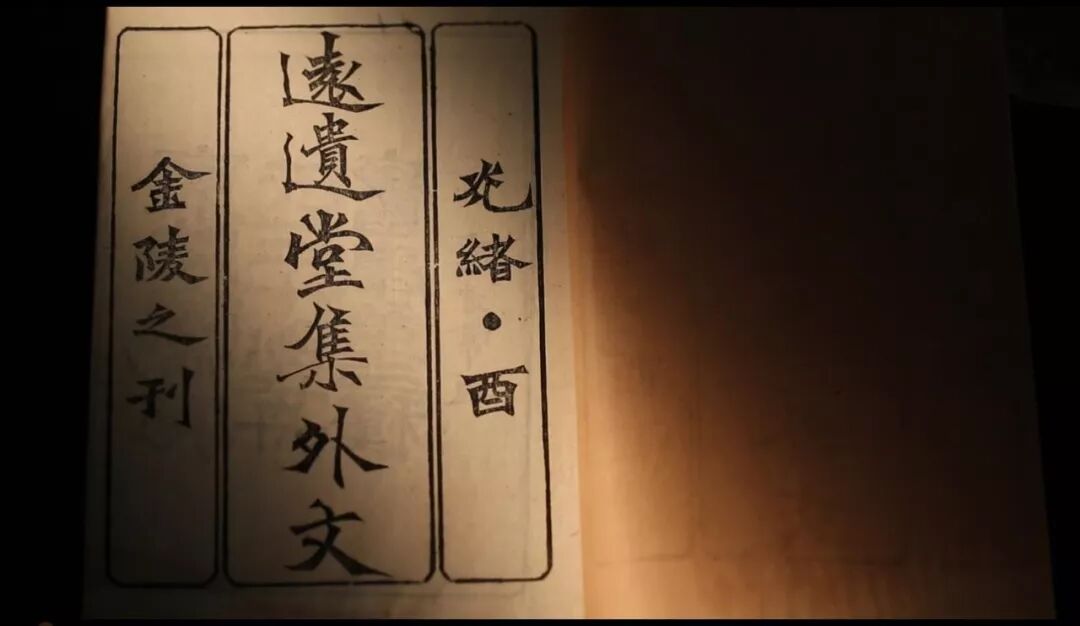 光緒·酉
遠遺堂集外文
金陵之刊